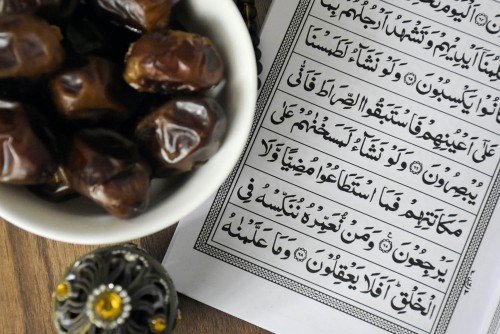 اَلْيَوْمَ
اَيْدِيْهِمْ وَتَشْهَدُ اَرْجُلُهُمْ بِمَا
نُوْا يَكْسِبُوْنَ ﴿٦٥﴾ وَلَوْ نَشَآءُ لَطَمَسْنَا
عَلٰٓى اَعْيُنِهِمْ فَاسْتَبَقُوا الصِّرَاطَ فَاَنّٰى
يُبْصِرُوْنَ ﴿٦٦﴾ وَلَوْ نَشَآءُ لَمَسَخْنٰهُمْ عَلٰى
مَكَانَتِهِمْ فَمَا اسْتَطَاعُوْا مُضِيًّا وَّلَا
يَرْجِعُوْنَ ﴿٦٧﴾ وَمَنْ نُّعَمِّرْهُ نُنَكِّسْهُ فِى
الْخَلْقِ ؕ اَفَلَا يَعْقِلُوْنَ ﴿٦٨﴾ وَمَا عَلَّمْنٰهُ